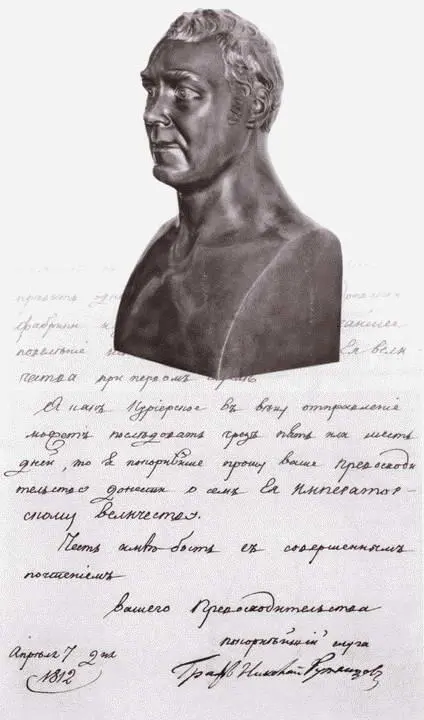 править одн
фабрик
повеление Ея вели-
чества при первом
А какъ Курiерское въ Вѣну отправленiе
можетъ последовать чрезъ пять или шесть
дней, то я покорнѣйше прошу ваше превосходи
тельство донести о семъ Ея Император-
скому величеству.
Честь имѣю быть съ совершеннымъ
почтенiемъ
вашего Превосходительства
покорнѣйшiй слуга
Апреля 7 дня
1812
Графъ Николай Румянцовъ